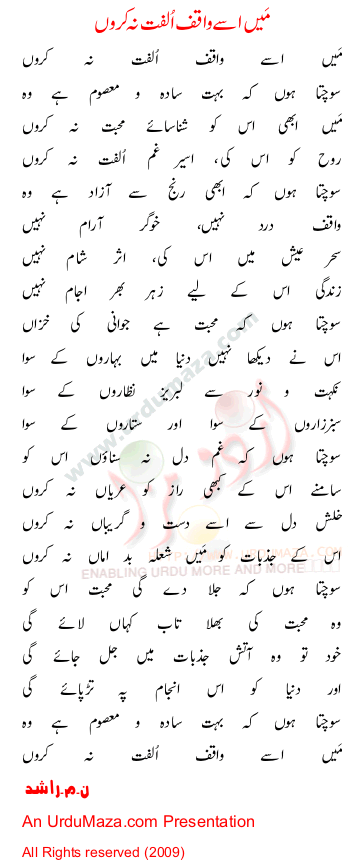 مَیں اسے واقف اُلفت نہ کروں
مَیں اسے واقف اُلفت نہ کروں
سوچتا ہوں کہ بہت سادہ و معصوم ہے وہ
مَیں ابھی اس کو شناسائے محبت نہ کروں
روح کو اس کی، اسیر غم اُلفت نہ کروں
سوچتا ہوں کہ ابھی رنج سے آزاد ہے وہ
واقف درد نہیں، خوگر آرام نہیں
سحر عیش میں اس کی، اثر شام نہیں
زندگی اس کے لیے زہر بھر اجام نہیں
سوچتا ہوں کہ محبت ہے جوانی کی خزاں
اس نے دیکھا نہیں دنیا میں بہاروں کے سوا
نکہت و نور سے لبریز نظاروں کے سوا
سبززاروں کے سوا اور ستاروں کے سوا
سوچتا ہوں کہ غم دل نہ سناؤں اس کو
سامنے اس کے کبھی راز کو عریاں نہ کروں
خلش دل سے اسے دست و گریباں نہ کروں
اس کے جذبات کو مَیں شعلہ بد اماں نہ کروں
سوچتا ہوں کہ جلا دے گی محبت اس کو
وہ محبت کی بھلا تاب کہاں لائے گی
خود تو وہ آتش جذبات میں جل جائے گی
اور دنیا کو اس انجام پہ تڑپائے گی
سوچتا ہوں کہ بہت سادہ و معصوم ہے وہ
مَیں اسے واقف اُلفت نہ کروں
ن.م.راشد
An UrduMaza.com Presentation
All Rights reserved (2009)
www.urdumaza.com
ENABLING URDU MORE AND MORE